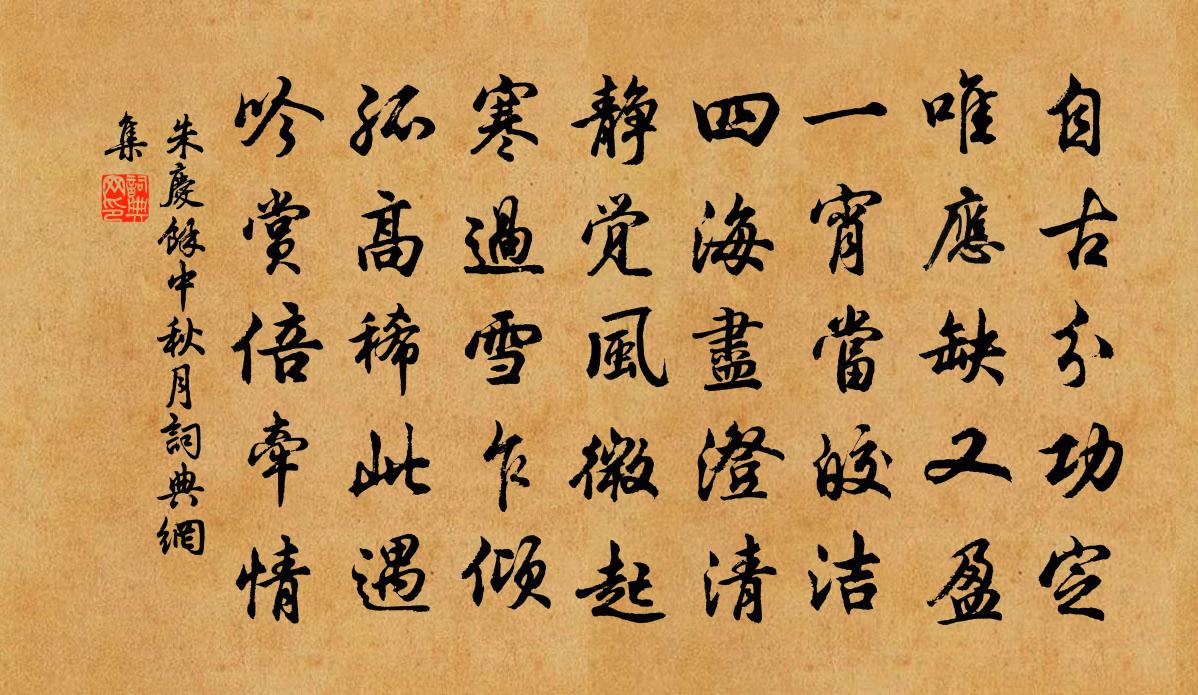 自古分功定
唯應缺又盈
一宵當皎洁
四海盡澄清
静觉風微起
寒過雪乍傾
孤高稀此遇
吟赏倍牽情
朱慶餘中秋月詞典網
集
詞典
网印